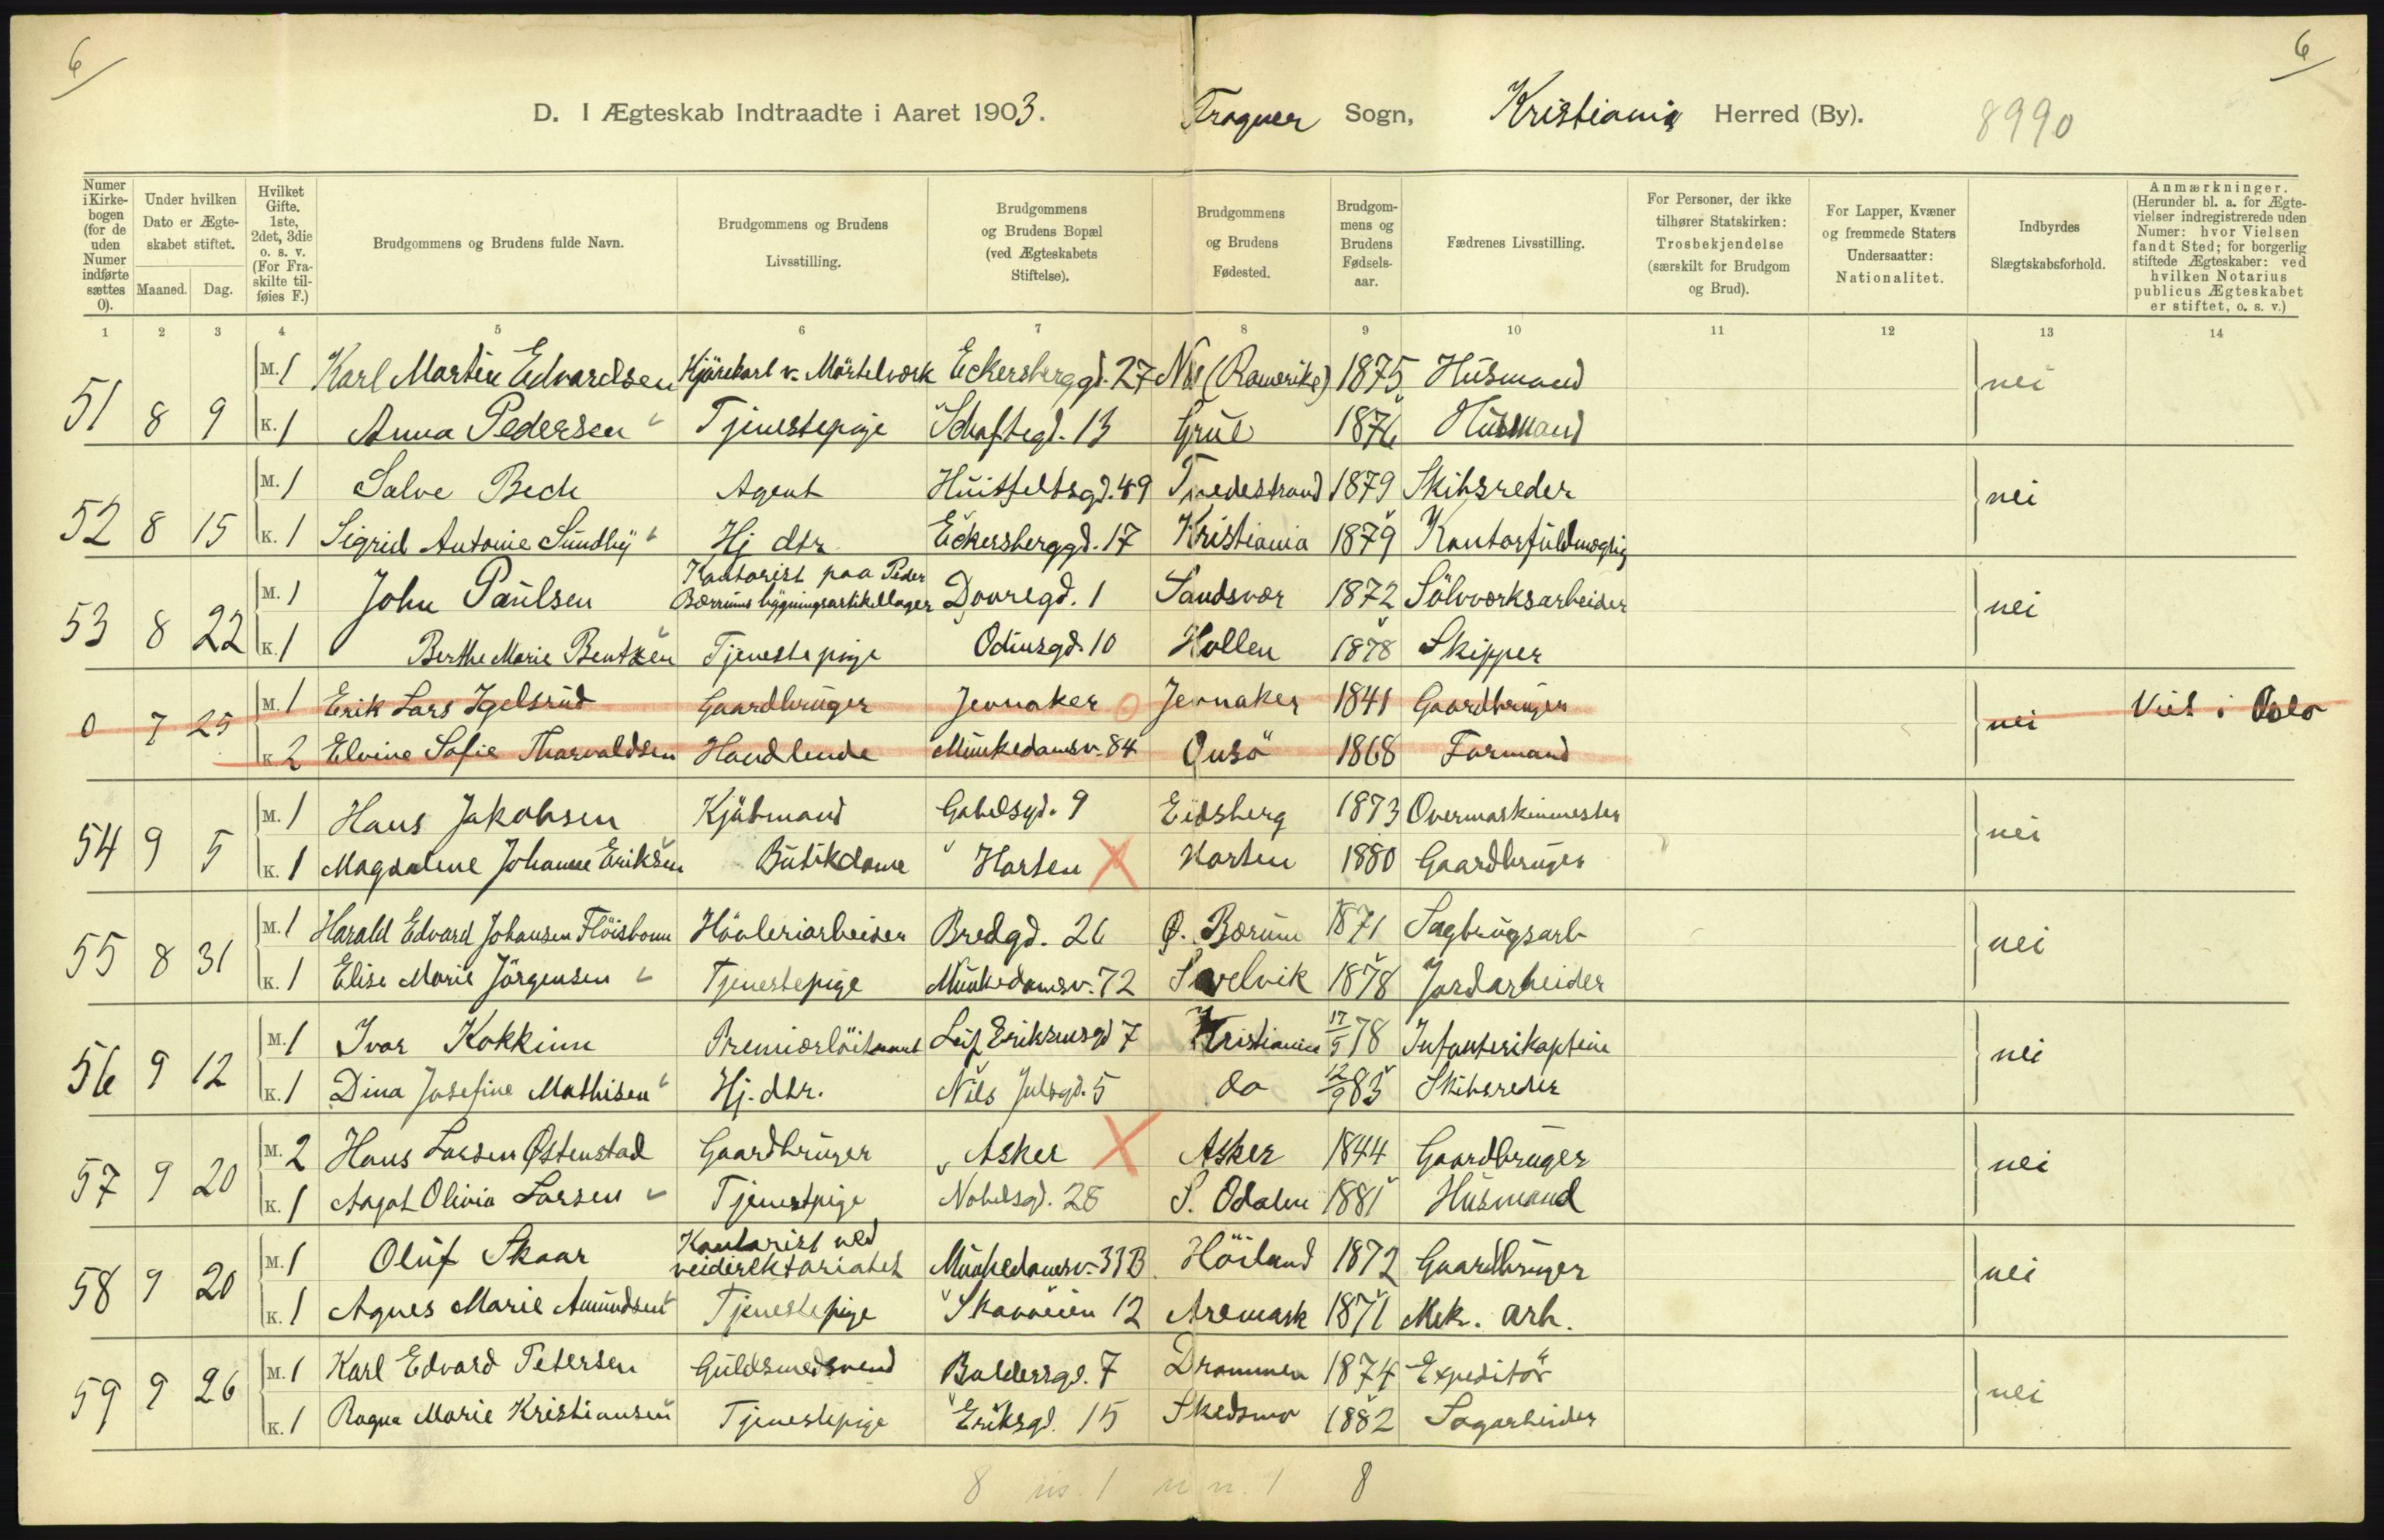 6 6
D. I Ægteskab Indtraadte i Aaret 1903. Frogner Sogn, Kristiania Herred (By). 8990
Numer i Kirke-bogen (for de uden Numer indførte sættes 0). Under hvilken Dato er Ægte-skabet stiftet. Maaned. Dag. Hvilket Gifte. 1ste, 2det, 3die o. s. v. (For Fra-skilte til-føies F.) Brudgommens og Brudens fulde Navn. Brudgommens og Brudens Livsstilling. Brudgommens og Brudens Bopæl (ved Ægteskabets Stiftelse). Brudgommens og Brudens Fødested. Brudgom-mens og Brudens Fødsels-aar. Fædrenes Livsstilling. For Personer, der ikke tilhører Statskirken: Trosbekjendelse (særskilt for Brudgom og Brud). For Lapper, Kvæner og fremmede Staters Undersaatter: Nationalitet. Indbyrdes Slægtskabsforhold. Anmærkninger. (Herunder bl. a. for Ægte-vielser indregistrerede uden Numer: hvor Vielsen fandt Sted; for borgerlig stiftede Ægteskaber: ved hvilken Notarius publicus Ægteskabet er stiftet, o. s. v.)
1 2 3 4 5 6 7 8 9 10 11 12 13 14
M. 1 Karl Martin Edvardsen Kjørekarl v. Mörtelværk Eckersberggd. 27 Næs (Romerike) 1875 Husmand nei
51 8 9 K. 1 Anna Pedersen Tjenestepige Schaftegd. 13 Grue 1876 Husmand
M. 1 Salve Bech Agent Huitfeltsgd. 49 Tvedestrand 1879 Skibsreder nei
52 8 15 K. 1 Sigrid Antonie Sundby Hj dtr. Eckersberggd. 17 Kristiania 1879 Kontorfuldmægtig
M. 1 John Paulsen Kontorist paa Peder Bærrums bygningsartikellager Dovregd. 1 Sandsvær 1872 Sölvværksarbeider nei
53 8 22 K. 1 Berthe Marie Bentzen Tjenestepige Odinsgd. 10 Hollen 1878 Skipper
M. 1 Erik Lars Igelsrud Gaardbruger Jevnaker Jevnaker 1841 Gaardbruger nei Viet i Oslo
0 7 25 K. 2 Elvine Sofie Thorvaldsen Handlende Munkedamsv. 84 Onsö 1868 Formand
M. 1 Hans Jakobsen Kjöbmand Gabelsgd. 9 Eidsberg 1873 Overmaskinmester nei
54 9 5 K. 1 Magdalene Johanne Eriksen Butikdame Horten Horten 1880 Gaardbruger
M. 1 Harald Edvard Johansen Flöisbonn Hövleriarbeider Bredgd. 26 Ø. Bærum 1871 Sagbrugsarb nei
55 8 31 K. 1 Elise Marie Jörgensen Tjenestepige Munkedamsv. 72 Svelvik 1878 Jordarbeider
M. 1 Ivar Kokkinn Premierlöitnant Leif Eriksensgd 7 Kristiania 17/5 78 Infanterikaptein nei
56 9 12 K. 1 Dina Josefine Mathisen Hj. dtr. Nils Julsgd. 5 do 12/9 83 Skibsreder
M. 2 Hans Larsen Østenstad Gaardbruger Asker Asker 1844 Gaardbruger nei
57 9 20 K. 1 Aagot Olivia Larsen Tjenestpige Nobelsgd. 28 S. Odalen 1881 Husmand
M. 1 Oluf Skaar Kontorist ved veidirektoriatet Munkedamsv. 33B Höiland 1872 Gaardbruger nei
58 9 20 K. 1 Agnes Marie Amundsen Tjenestepige Skovveien 12 Aremark 1871 Mek. arb.
M. 1 Karl Edvard Petersen Guldsmedsvend Baldersgd. 7 Drammen 1874 Expeditör nei
59 9 26 K. 1 Ragna Marie Kristiansen Tjenestepige Eriksgd. 15 Skedsmo 1882 Sagarbeider
8 8